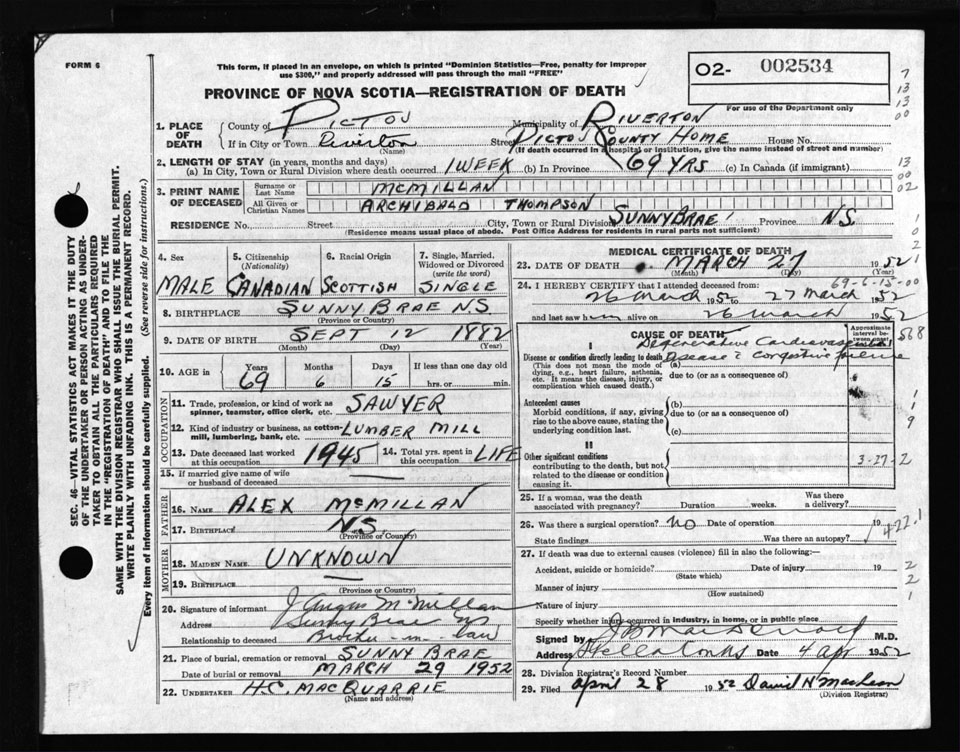 FORM 6
This form, if placed in an envelope, on which is printed "Dominion Statistics—Free, penalty for improper
use $300," and properly addressed will pass through the mail "FREE"
O2- 002534
For use of the Department only
PROVINCE OF NOVA SCOTIA—REGISTRATION OF DEATH
1. PLACE OF DEATH { County of PICTOU Municipality of RIVERTON
If in City or Town Riverton (Name) Street PICTOU COUNTY HOME House No.
(If death occurred in a hospital or institution, give the name instead of street and number)
2. LENGTH OF STAY (in years, months and days)
(a) In City, Town or Rural Division where death occurred 1 WEEK (b) In Province 69 YRS (c) In Canada (if immigrant)
3. PRINT NAME OF DECEASED { Surname or Last Name MCMILLAN
All Given or Christian Names ARCHIBALD THOMPSON
RESIDENCE No. Street City, Town or Rural Division SUNNYBRAE Province N.S.
(Residence means usual place of abode. Post Office Address for residents in rural parts not sufficient)
4. Sex 5. Citizenship (Nationality) 6. Racial Origin 7. Single, Married, Widowed or Divorced (write the word)
MALE CANADIAN SCOTTISH SINGLE
8. BIRTHPLACE SUNNY BRAE N.S.
(Province or Country)
9. DATE OF BIRTH SEPT 12 1882
(Month) (Day) (Year)
10. AGE in Years Months Days If less than one day old
69 6 15 hrs. or min.
OCCUPATION
11. Trade, profession, or kind of work as spinner, teamster, office clerk, etc. SAWYER
12. Kind of industry or business, as cotton-mill, lumbering, bank, etc. LUMBER MILL
13. Date deceased last worked at this occupation 1945 14. Total yrs. spent in this occupation LIFE
15. If married give name of wife or husband of deceased
FATHER
16. NAME ALEX MCMILLAN
17. BIRTHPLACE N.S.
(Province or Country)
MOTHER
18. MAIDEN NAME UNKNOWN
19. BIRTHPLACE
(Province or Country)
20. Signature of informant J Angus McMillan
Address Sunny Brae NS
Relationship to deceased Brother-in-law
21. Place of burial, cremation or removal SUNNY BRAE
Date of burial or removal MARCH 29 1952
22. UNDERTAKER H.C. MACQUARRIE
(Name and Address)
MEDICAL CERTIFICATE OF DEATH
23. DATE OF DEATH MARCH 27 1952
(Month) (Day) (Year)
69-6-15-00
24. I HEREBY CERTIFY that I attended deceased from:
26 March 1952 to 27 March 1952
and last saw h alive on 26 March 1952
CAUSE OF DEATH
Approximate interval between onset
I
Disease or condition directly leading to death (a) Degenerative Cardiovascular Disease c Congestive failure
(This does not mean the mode of dying, e.g., heart failure, asthenia, etc. It means the disease, injury, or complication which caused death.)
due to (or as a consequence of)
Antecedent causes
Morbid conditions, if any, giving rise to the above cause, stating the underlying condition last.
(b)
due to (or as a consequence of)
(c)
II
Other significant conditions
contributing to the death, but not related to the disease or condition causing it.
3-27-2
25. If a woman, was the death associated with pregnancy? Duration weeks. Was there a delivery?
26. Was there a surgical operation? NO Date of operation 19
State findings Was there an autopsy?
422.1
27. If death was due to external causes (violence) fill in also the following:—
Accident, suicide or homicide? Date of injury 19
(State which)
Manner of injury
(How sustained)
Nature of injury
Specify whether injury occurred in industry, in home, or in public place
Signed by M.D.
Address Date 4 apr 1952
28. Division Registrar's Record Number
29. Filed April 28 1952 David H MacLean
(Division Registrar)
SEC. 46—VITAL STATISTICS ACT MAKES IT THE DUTY
OF THE UNDERTAKER OR PERSON ACTING AS UNDER-
TAKER TO OBTAIN ALL THE PARTICULARS REQUIRED
IN THE "REGISTRATION OF DEATH" AND TO FILE THE
SAME WITH THE DIVISION REGISTRAR WHO SHALL ISSUE THE BURIAL PERMIT.
WRITE PLAINLY WITH UNFADING INK. THIS IS A PERMANENT RECORD.
Every item of information should be carefully supplied. (See reverse side for instructions.)